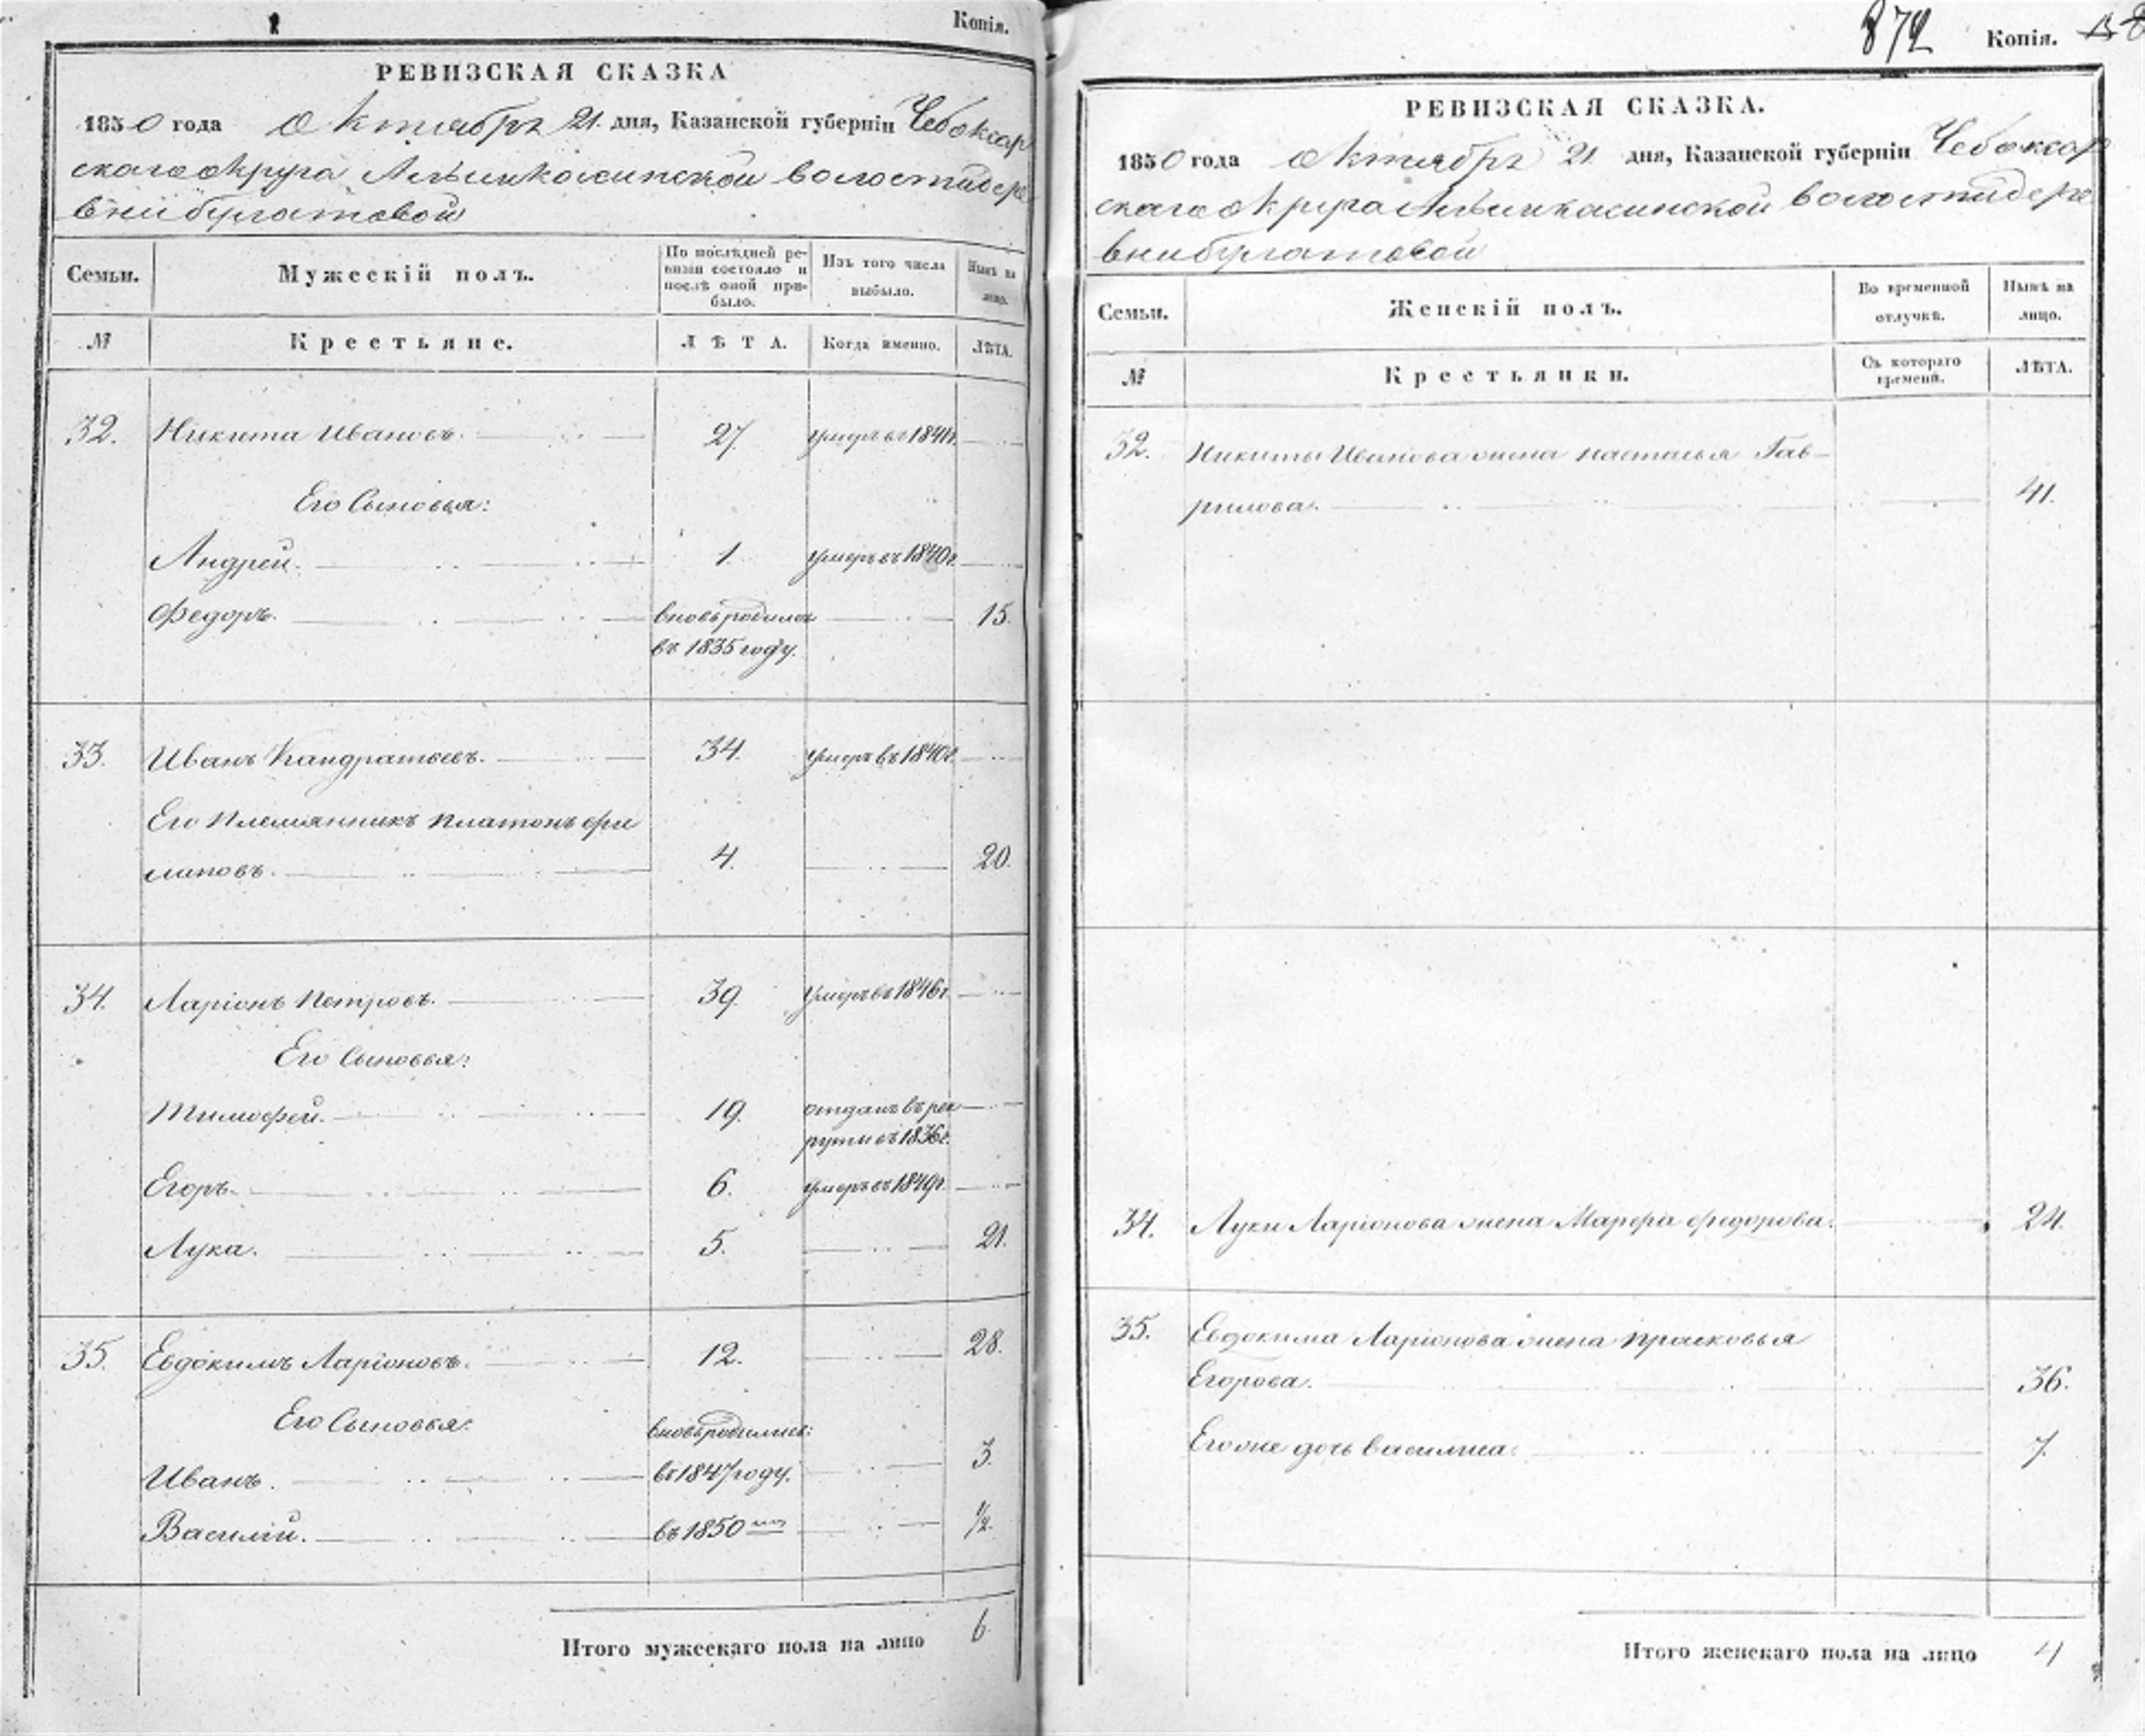 Копія.
РЕВИЗСКАЯ СКАЗКА
1850 года Октября 21. дня, Казанской губерніи Чебоксар
скаго округа волости дере
вни булатовой
Семьи.
Мужескій полъ.
По послѣдней ре-
визіи состояло и
послѣ оной при-
было.
Изъ того числа
выбыло.
Нынѣ на
лицо.
№
Крестьяне.
ЛѢТА.
Когда именно.
ЛѢТА.
32. Никита Ивановъ. 27 умеръ въ 1841г.
Его Сыновья:
Андрей. 1. умеръ въ 1840г.
Федоръ. вновь родился 15.
въ 1835 году.
33. Иванъ Кандратьевъ. 34. умеръ въ 1840г.
Его Племянникъ Платонъ Фи
липовъ. 4. 20.
34. Ларіонъ Петровъ. 39. умеръ въ 1846г.
Его Сыновья:
Тимофей. 19. отданъ въ рек
руты въ 1836г.
Егоръ. 6. умеръ въ 1849г.
Лука. 5. 21.
35. Евдокимъ Ларіоновъ. 12. 28.
Его Сыновья: вновь родились:
Иванъ. въ 1847 году. 3.
Василій. въ 1850 1/2.
Итого мужескаго пола на лицо 6
872 Копія.
РЕВИЗСКАЯ СКАЗКА.
1850 года Октября 21 дня, Казанской губерніи Чебоксар
скаго округа волости дере
вни булатовой
Семьи.
Женскій полъ.
Во временной
отлучкѣ.
Нынѣ на
лицо.
№
Крестьянки.
Съ котораго
времени.
ЛѢТА.
32. Никиты Иванова жена настасья Гав-
рилова. 41.
34. Луки Ларіонова жена Марфа федорова. 24.
35. Евдокима Ларіонова жена прасковья
Егорова. 36.
Его же дочь василиса. 7.
Итого женскаго пола на лицо 4